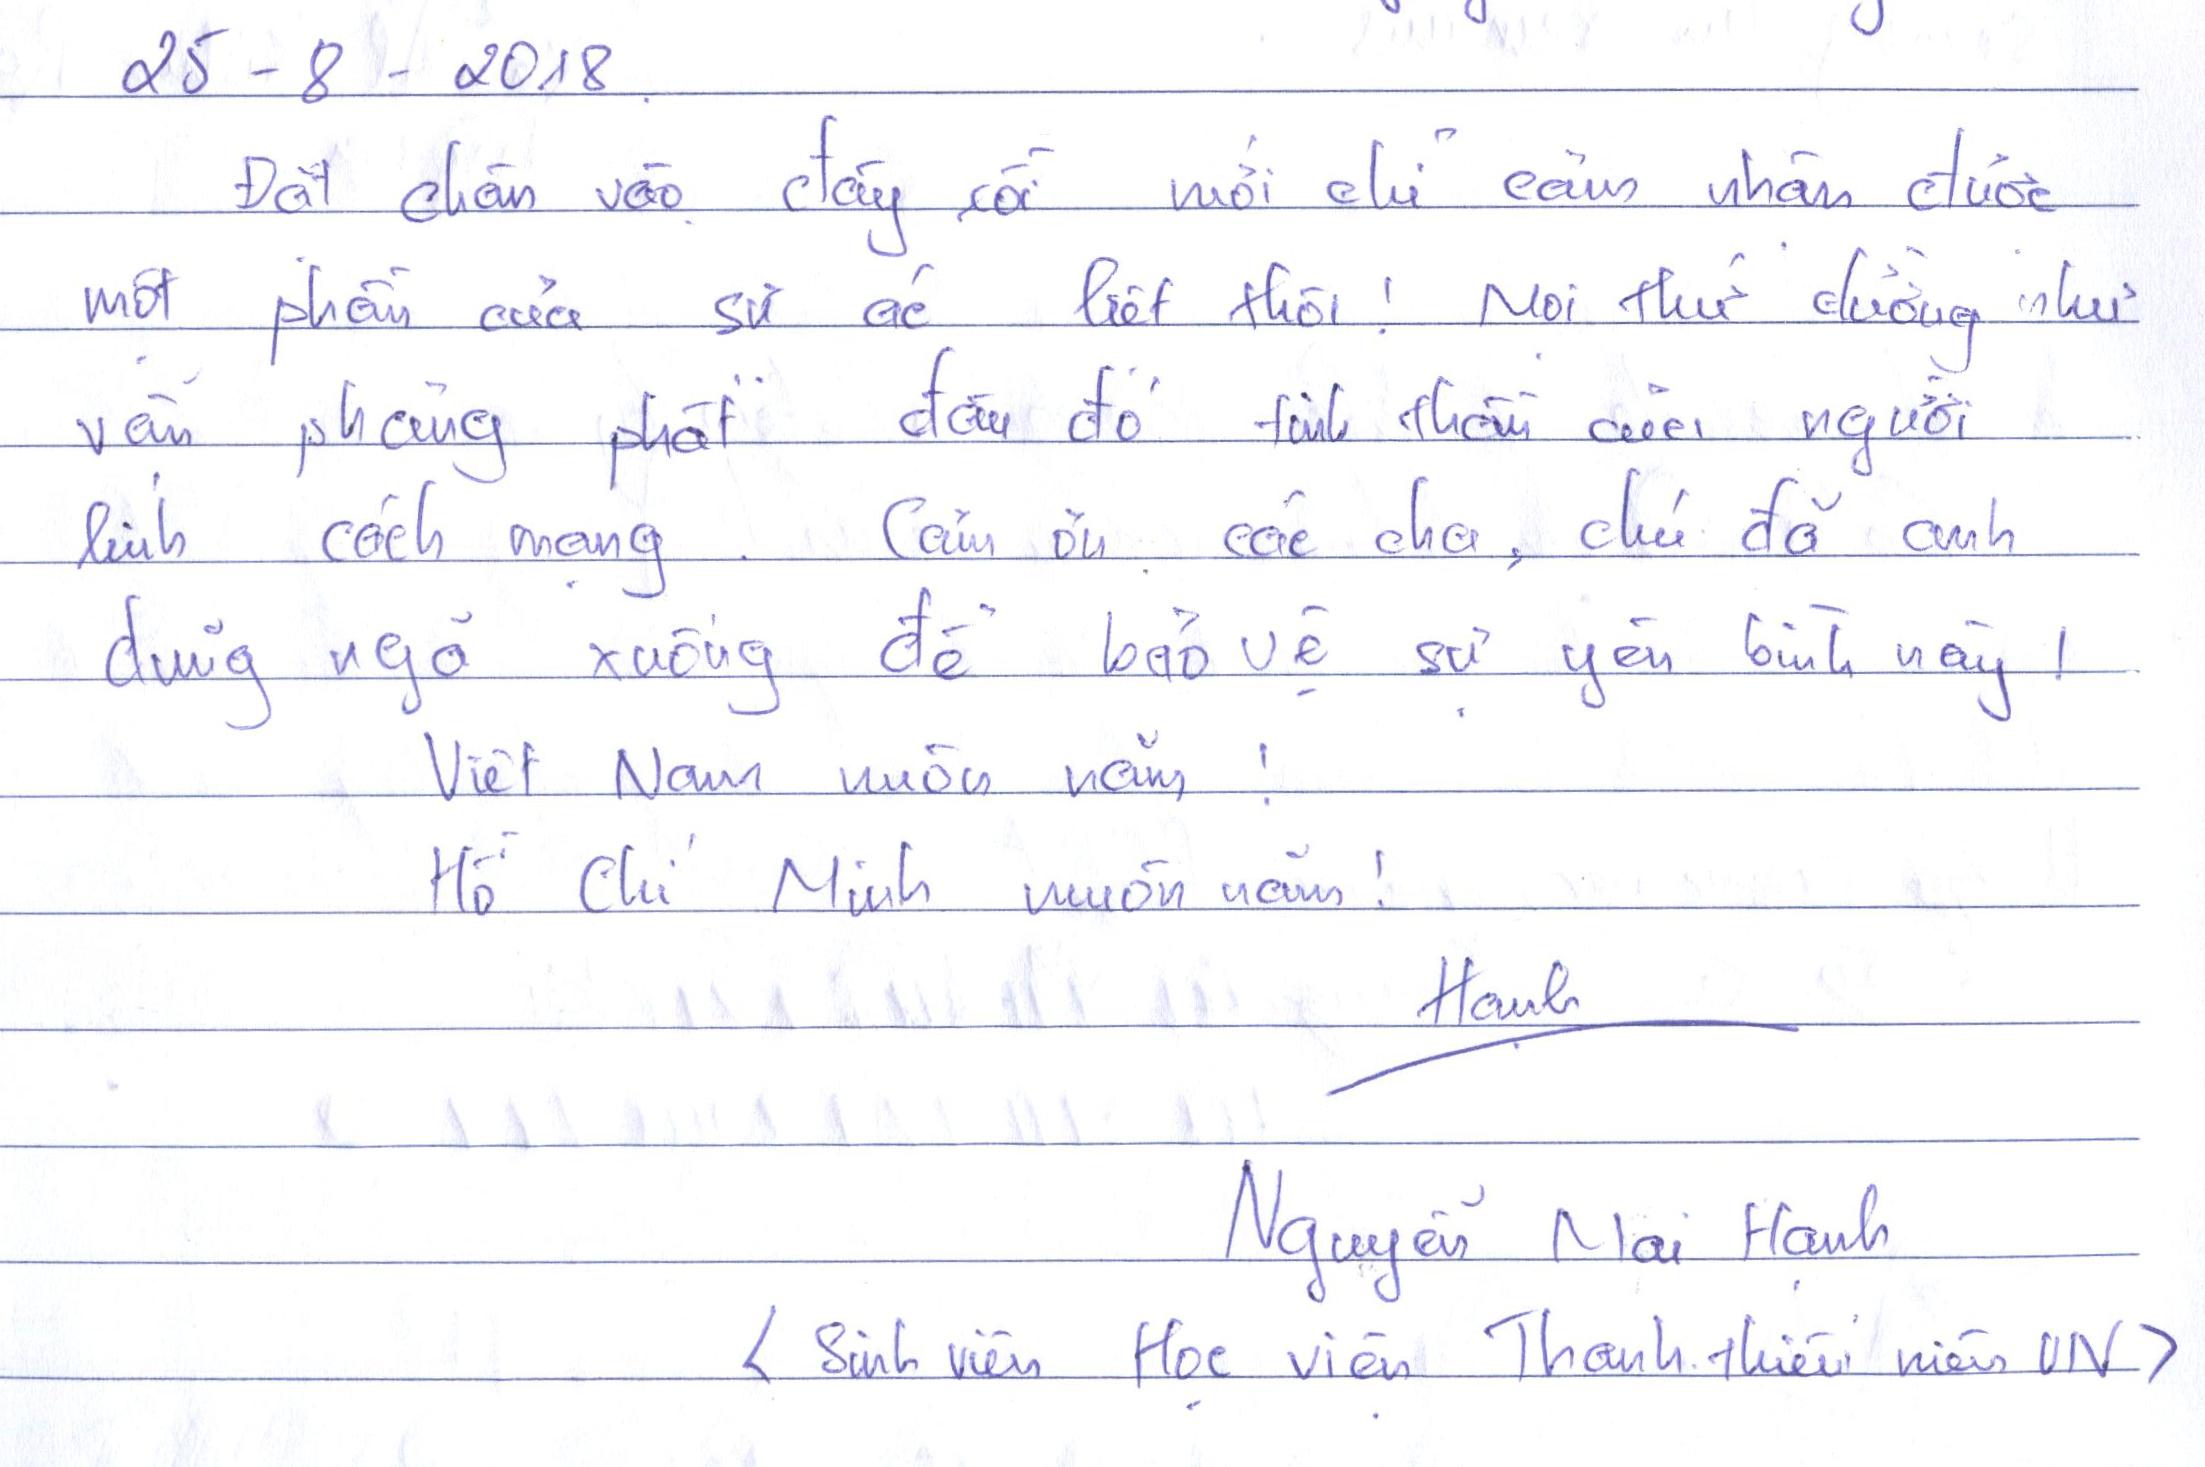 25 - 8 - 2018
Đặt chân vào đây rồi mới chỉ cảm nhận được
một phần của sự ác liệt thôi! Mọi thứ dường như
vẫn phảng phất đâu đó tinh thần của người
lính cách mạng. Cảm ơn các cha, chú đã anh
dũng ngã xuống để bảo vệ sự yên bình này!
Việt Nam muôn năm!
Hồ Chí Minh muôn năm!
Hạnh
Nguyễn Mai Hạnh
< Sinh viên Học viện Thanh thiếu niên VN >